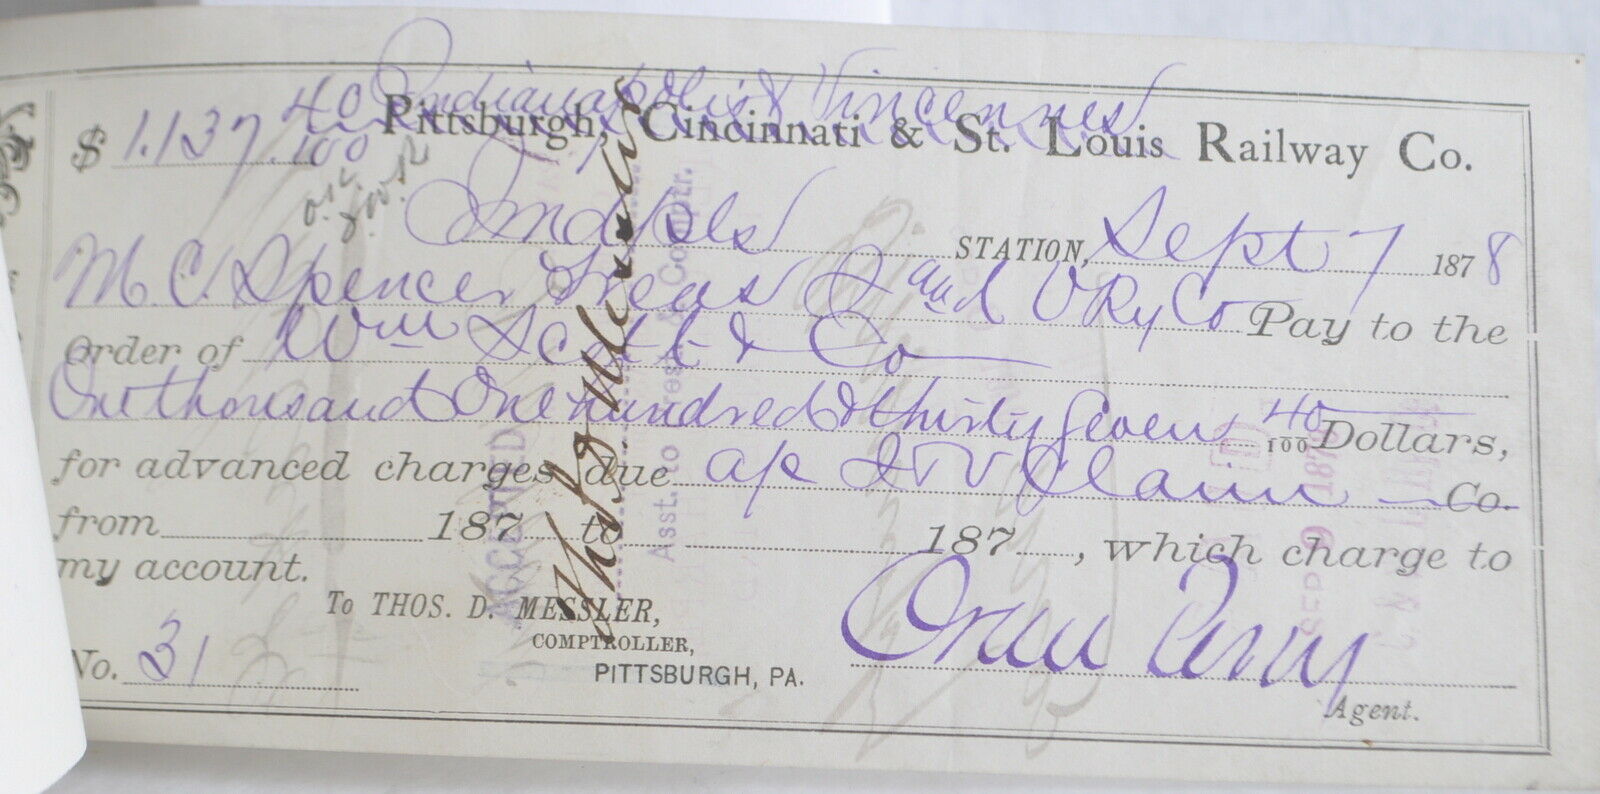 Indianapolis & Vincennes
$ 1.137.40/100 Pittsburgh, Cincinnati & St. Louis Railway Co.
O.K.
Indpls STATION, Sept 7 1878
M. C. Spencer Treas I and V Ry Co Pay to the
Order of Wm Scott & Co
One thousand One hundred & thirty Seven 40/100 Dollars,
for advanced charges due a/c I & V Claim Co.
from 187 to 187 , which charge to
my account.
To THOS. D. MESSLER,
COMPTROLLER,
PITTSBURGH, PA.
No. 31
Oran Perry
Agent.
ACCEPTED
Thos D Messler
Asst. to Prest. & Comptr.
SEP 9 1878